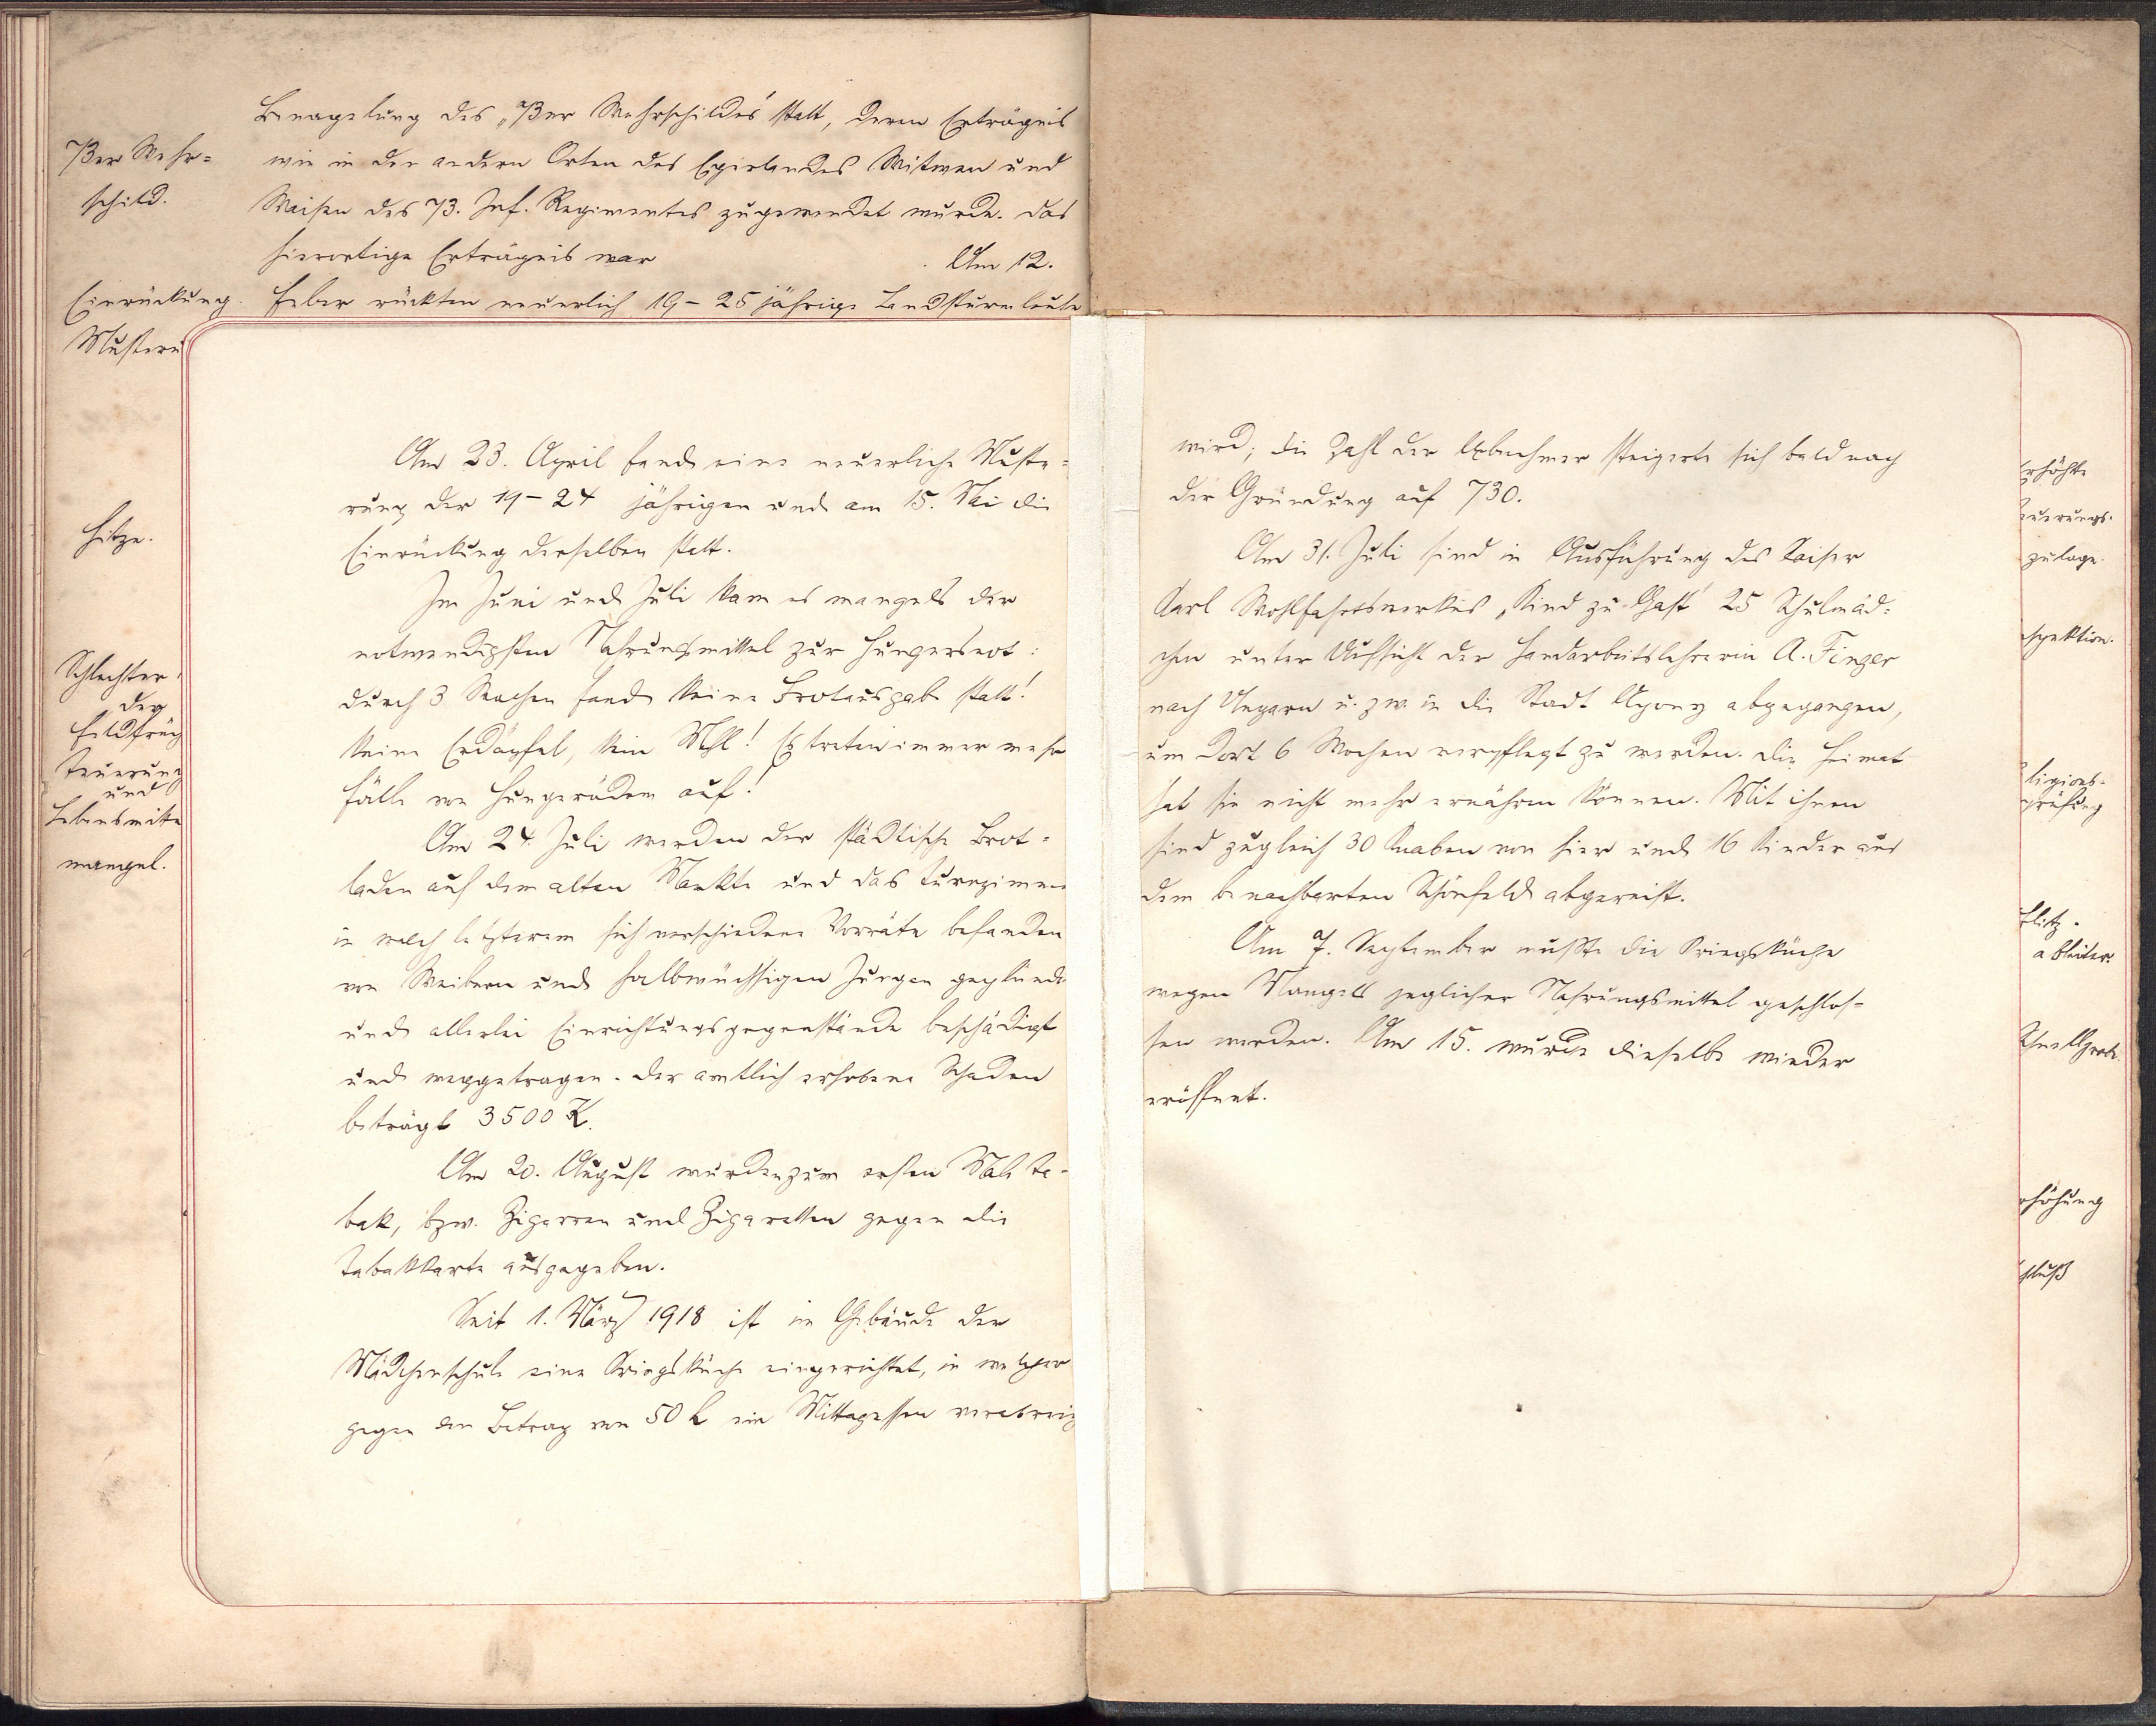 Benagelung des „73er Wehrschildes" statt, deren Erträgnis
73er Wehr=
schild.
wie in den andern Orten des Egerlandes Witwen und
Waisen des 73. Inf. Regimentes zugewendet wurde. Das
hierortige Erträgnis war Am 12.
Einrückung.
Feber rückten neuerlich 19-25 jährige Landsturmleute
Musteru
Hitze.
Schlechter
der
Feldfrüch
Teuerung
und
Lebensmitte
mangel.
Am 23. April fand eine neuerliche Muste=
rung der 19-24 jährigen und am 15. Mai die
Einrückung derselben statt.
Im Juni und Juli kam es mangels der
notwendigsten Nahrungsmittel zur Hungersnot:
durch 3 Wochen fand keine Brotausgabe statt!
Keine Erdäpfel, kein Mehl! Es treten immer mehr
Fälle von Hungerödem auf!
Am 24. Juli werden der städtische Brot=
laden auf dem alten Markte und das Turnzimmer
in welch letzterem sich verschiedene Vorräte befanden
von Weibern und halbwüchsigen Jungen geplünde
und allerlei Einrichtungsgegenstände beschädigt
und weggetragen. Der amtlich erhobene Schaden
beträgt 3500 K.
Am 20. August wurden zum ersten Male Ta-
bak, bzw. Zigarren und Zigaretten gegen die
Tabakkarte ausgegeben.
Seit 1. März 1918 ist im Gebäude der
Mädchenschule eine Kriegsküche eingerichtet, in welcher
gegen den Betrag von 50 h ein Mittagessen verabreich
wird; die Zahl der Abnehmer steigerte sich bald nach
der Gründung auf 730.
Am 31. Juli sind in Ausführung des Kaiser
Karl Wohlfahrtswerkes „Kind zu Gast" 25 Schulmäd=
chen unter Aufsicht der Handarbeitslehrerin A. Finger
nach Ungarn u. zw. in die Stadt Apony abgegangen,
um dort 6 Wochen verpflegt zu werden. Die Heimat
hat sie nicht mehr ernähren können. Mit ihnen
sind zugleich 30 Knaben von hier und 16 Kinder aus
dem benachbarten Schönfeld abgereist.
Am 7. September mußte die Kriegsküche
wegen Mangels jeglicher Nahrungsmittel geschlos=
sen werden. Am 15. wurde dieselbe wieder
eröffnet.
rhöhte
euerungs-
zulage.
nspektion.
ligions-
prüfung
Blitz-
ableiter.
rhöhung
hluß